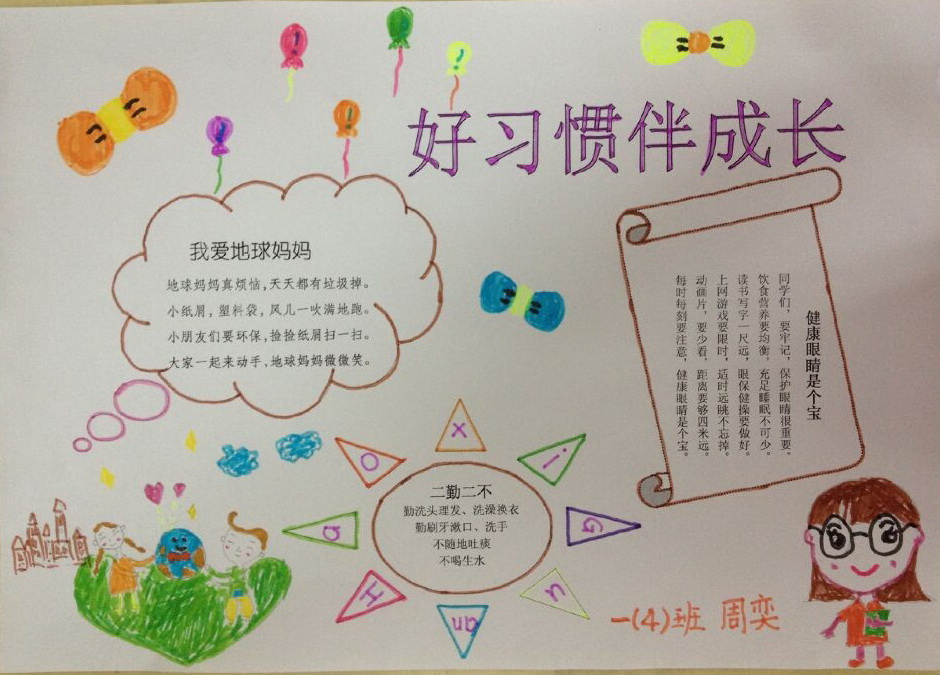 好习惯伴成长
我爱地球妈妈
地球妈妈真烦恼，天天都有垃圾掉。
小纸屑，塑料袋，风儿一吹满地跑。
小朋友们要环保，捡捡纸屑扫一扫。
大家一起来动手，地球妈妈微微笑。
健康眼睛是个宝
同学们，要牢记，保护眼睛很重要、
饮食营养要均衡，充足睡眠不可少。
读书写字一尺远，眼保健操要做好。
上网游戏要限时，适时远眺不忘掉。
动画片，要少看，距离要够四米远。
每时每刻要注意，健康眼睛是个宝。
H
a
o
x
i
G
u
an
二勤二不
勤洗头理发、洗澡换衣
勤刷牙漱口、洗手
不随地吐痰
不喝生水
一(4)班 周奕